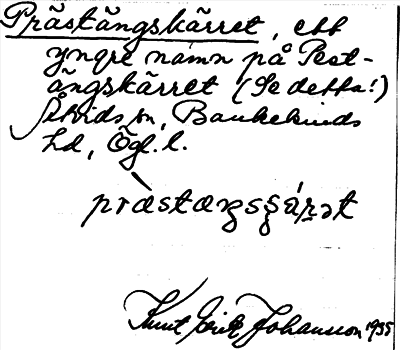 Prästängskärret, ett
yngre namn på Pest-
ängskärret (Se detta!)
Åtvids sn, Bankekinds
hd, Ögl. l.
pràstæŋsʂáṟət
Knut Erik Johansson 1935